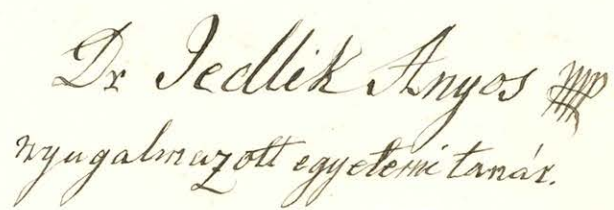 Dr Jedlik Ányos
nyugalmazott egyetemi tanár.